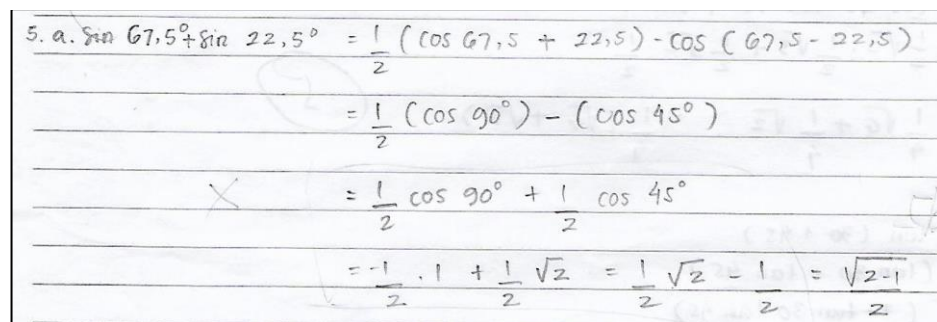 5. a. Sin 67,5° + Sin 22,5° = 1/2 (cos 67,5 + 22,5) - cos (67,5 - 22,5)
= 1/2 (cos 90°) - (cos 45°)
= 1/2 cos 90° + 1/2 cos 45°
= -1/2 . 1 + 1/2 √2 = 1/2 √2 - 1/2 = √2-1/2